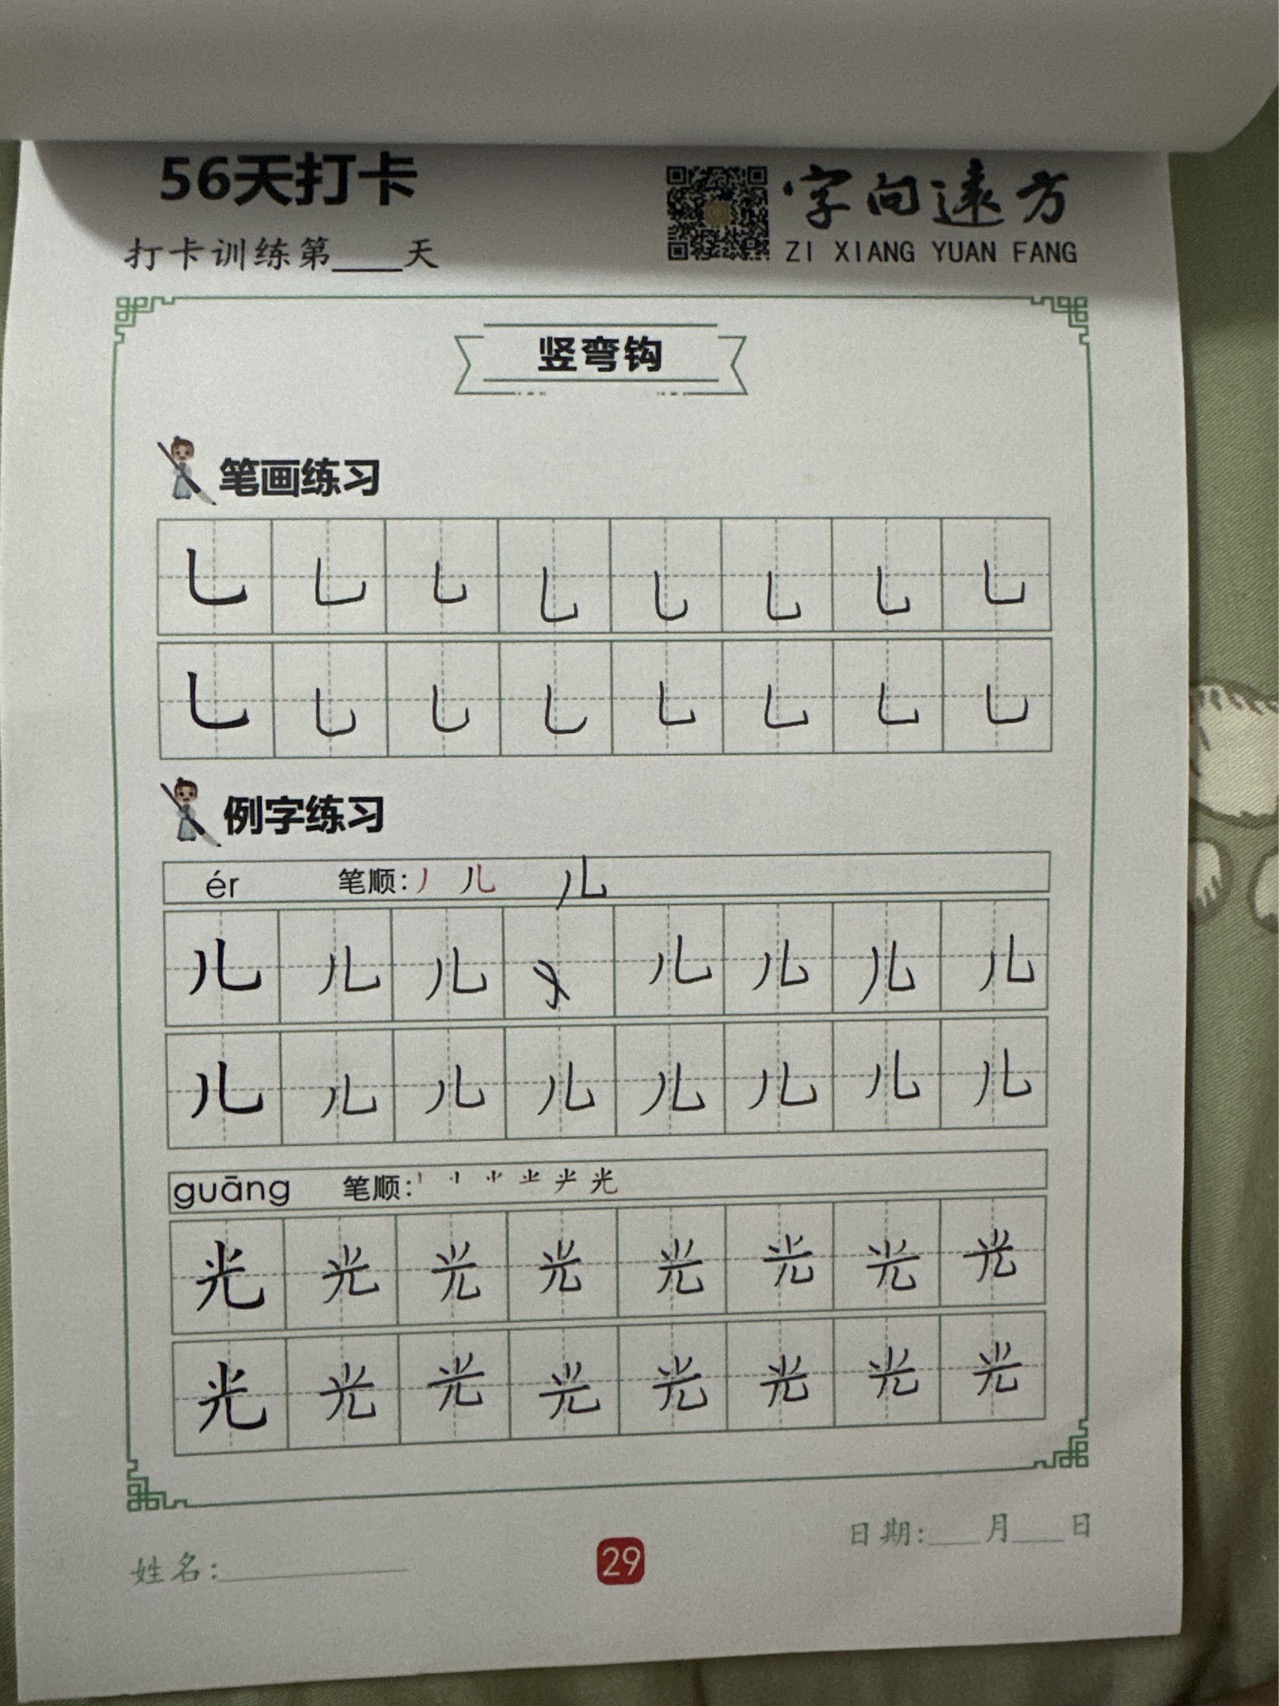 56天打卡
字向遠方
打卡训练第____天
ZI XIANG YUAN FANG
竖弯钩
笔画练习
乚 乚 乚 乚 乚 乚 乚 乚
乚 乚 乚 乚 乚 乚 乚 乚
例字练习
ér 笔顺: 丿 儿 儿
儿 儿 儿 儿 儿 儿 儿
儿 儿 儿 儿 儿 儿 儿 儿
guāng 笔顺: 光
光 光 光 光 光 光 光 光
光 光 光 光 光 光 光 光
日期:___月___日
姓名:___________
29